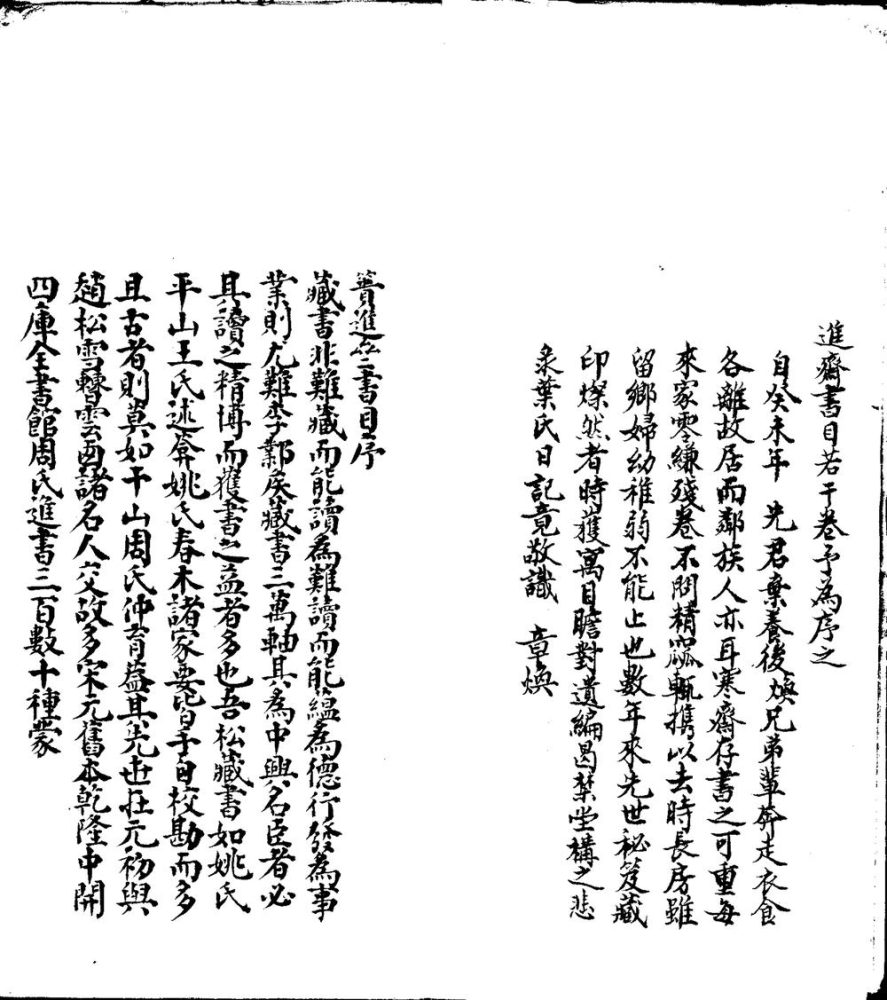 進齋書目若干卷予為序之
自癸未年 先君棄養後煥兄弟輩奔走衣食
各離故居而鄰族人亦耳寒齋存書之可重每
來家零縑殘卷不問精窳輒携以去時長房雖
留鄉婦幼稚弱不能止也數年來先世秘笈藏
印燦然者時獲寓目瞻對遺編曷禁堂構之悲
彔葉氏日記竟敬識 章煥
簣進齋書目序
藏書非難藏而能讀為難讀而能蘊為德行發為事
業則尤難李鄴矦藏書三萬軸其為中興名臣者必
其讀之精博而獲書之益者多也吾松藏書如姚氏
平山王氏述菴姚氏春木諸家要皆手自校勘而多
且古者則莫如干山周氏仲育益其先世在元初與
趙松雪曹雲西諸名人交故多宋元舊本乾隆中開
四庫全書館周氏進書三百數十種蒙